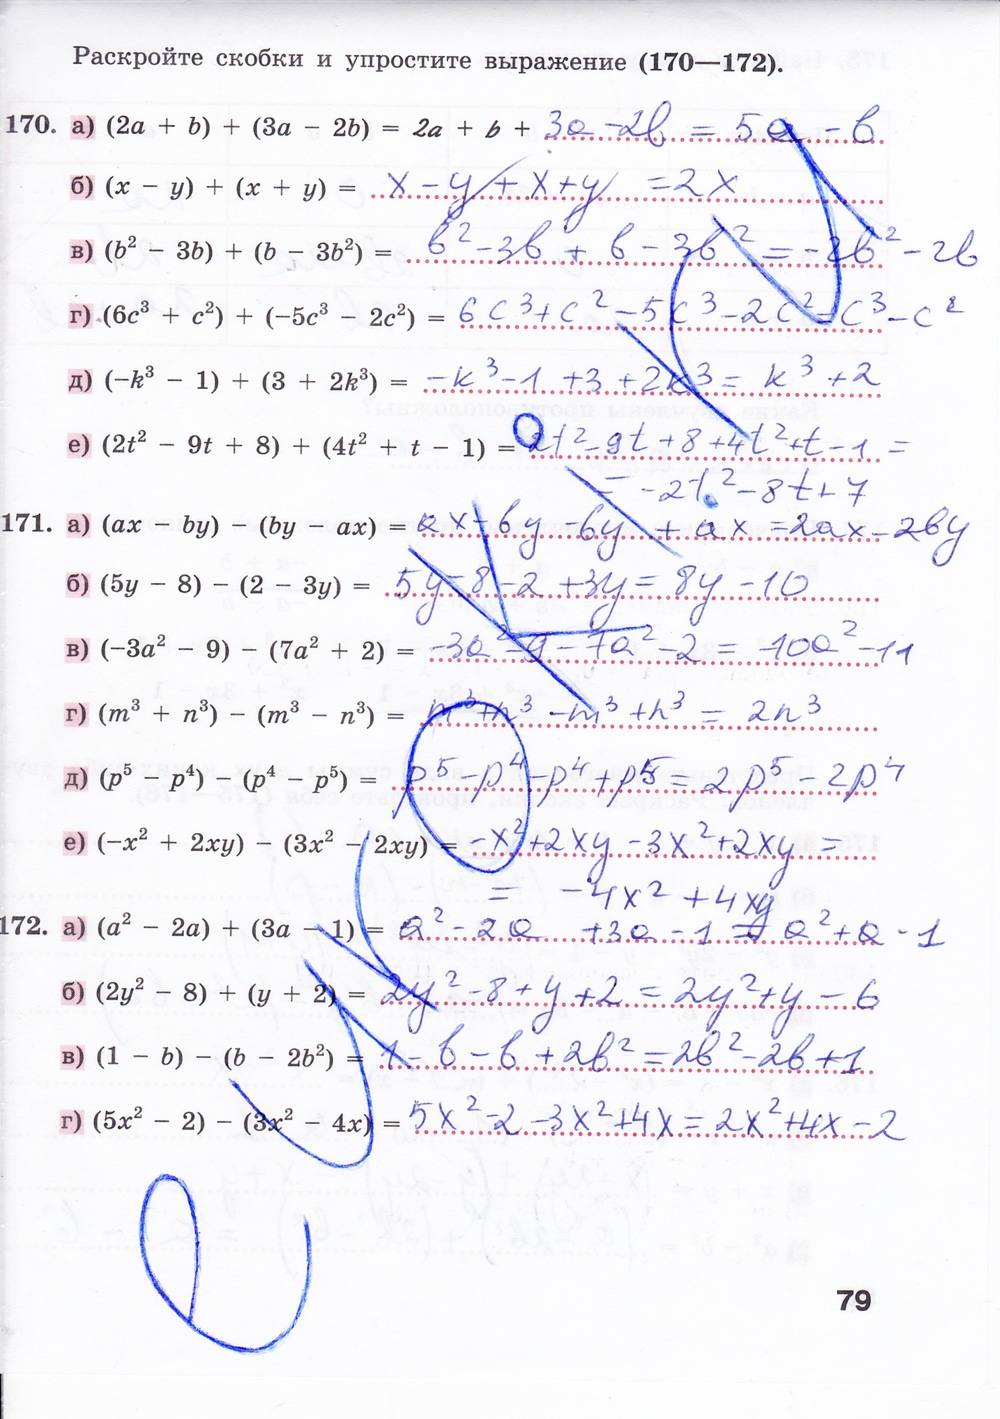 Раскройте скобки и упростите выражение (170—172).
170. а) (2a + b) + (3a − 2b) = 2a + b + 3a − 2b = 5a − b
б) (x − y) + (x + y) = x − y + x + y = 2x
в) (b² − 3b) + (b − 3b²) = b² − 3b + b − 3b² = −2b² − 2b
г) (6c³ + c²) + (−5c³ − 2c²) = 6c³ + c² − 5c³ − 2c² = c³ − c²
д) (−k³ − 1) + (3 + 2k³) = −k³ − 1 + 3 + 2k³ = k³ + 2
е) (2t² − 9t + 8) + (4t² + t − 1) = 2t² − 9t + 8 + 4t² + t − 1 =
= −2t² − 8t + 7
171. а) (ax − by) − (by − ax) = ax − by − by + ax = 2ax − 2by
б) (5y − 8) − (2 − 3y) = 5y − 8 − 2 + 3y = 8y − 10
в) (−3a² − 9) − (7a² + 2) = −3a² − 9 − 7a² − 2 = −10a² − 11
г) (m³ + n³) − (m³ − n³) = m³ + n³ − m³ + n³ = 2n³
д) (p⁵ − p⁴) − (p⁴ − p⁵) = p⁵ − p⁴ − p⁴ + p⁵ = 2p⁵ − 2p⁴
е) (−x² + 2xy) − (3x² − 2xy) = −x² + 2xy − 3x² + 2xy =
= −4x² + 4xy
172. а) (a² − 2a) + (3a − 1) = a² − 2a + 3a − 1 = a² + a − 1
б) (2y² − 8) + (y + 2) = 2y² − 8 + y + 2 = 2y² + y − 6
в) (1 − b) − (b − 2b²) = 1 − b − b + 2b² = 2b² − 2b + 1
г) (5x² − 2) − (3x² − 4x) = 5x² − 2 − 3x² + 4x = 2x² + 4x − 2
79